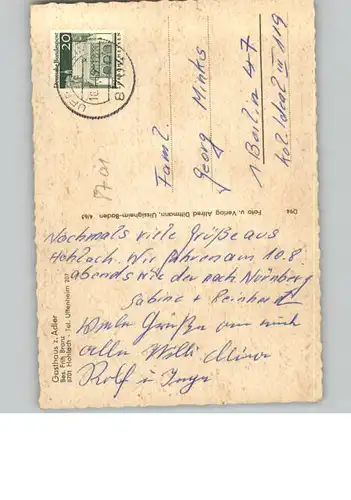 20
Deutsche Bundespost
8701
Faml.
Georg Minks
1 Berlin 47
Kol. Ideal III 119
D94
Foto u. Verlag Alfred Dittmann, Uissigheim-Baden 4/65
Nochmals viele Grüße aus
Hohlach. Wir fahren am 10.8.
abends wieder nach Nürnberg
Sabine + Reinhardt
Grüßen
alle Willi
Rolf u. Inge
Gasthaus z. Adler
Bes. Fritz Branz
8701 Hohlach - Tel. Uffenheim 207